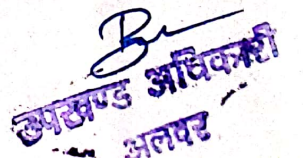 उपखण्ड अधिकारी
अलवर